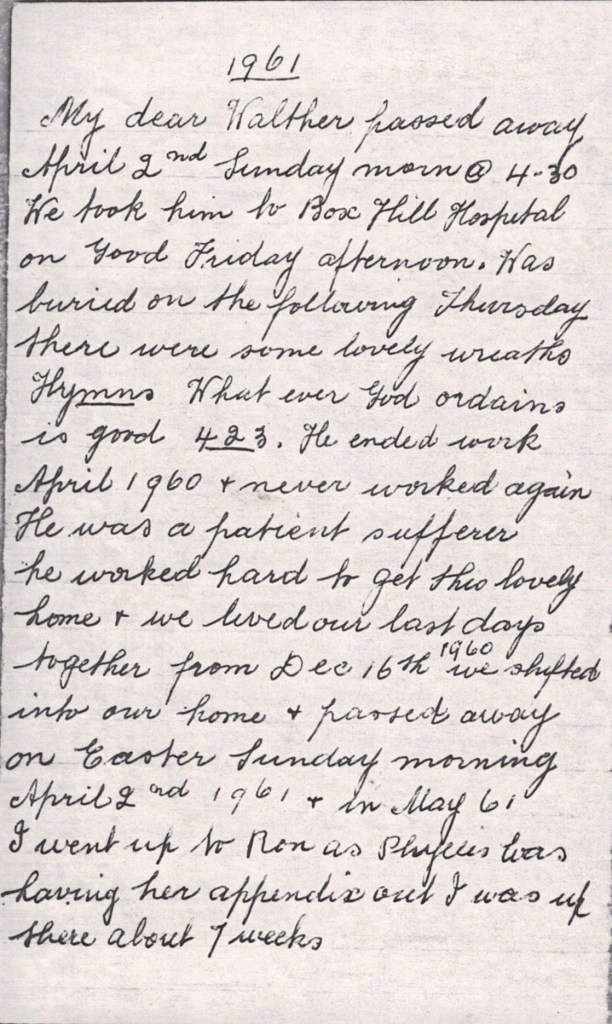 1961
My dear Walther passed away
April 2nd Sunday morn @ 4-30
We took him to Box Hill Hospital
on Good Friday afternoon. Was
buried on the following Thursday
there were some lovely wreaths
Hymns What ever God ordains
is good 423. He ended work
April 1960 + never worked again
He was a patient sufferer
he worked hard to get this lovely
home + we lived our last days
together from Dec 16th 1960 we shifted
into our home + passed away
on Easter Sunday morning
April 2nd 1961 + in May 61
I went up to Ron as Phyllis was
having her appendix out I was up
there about 7 weeks